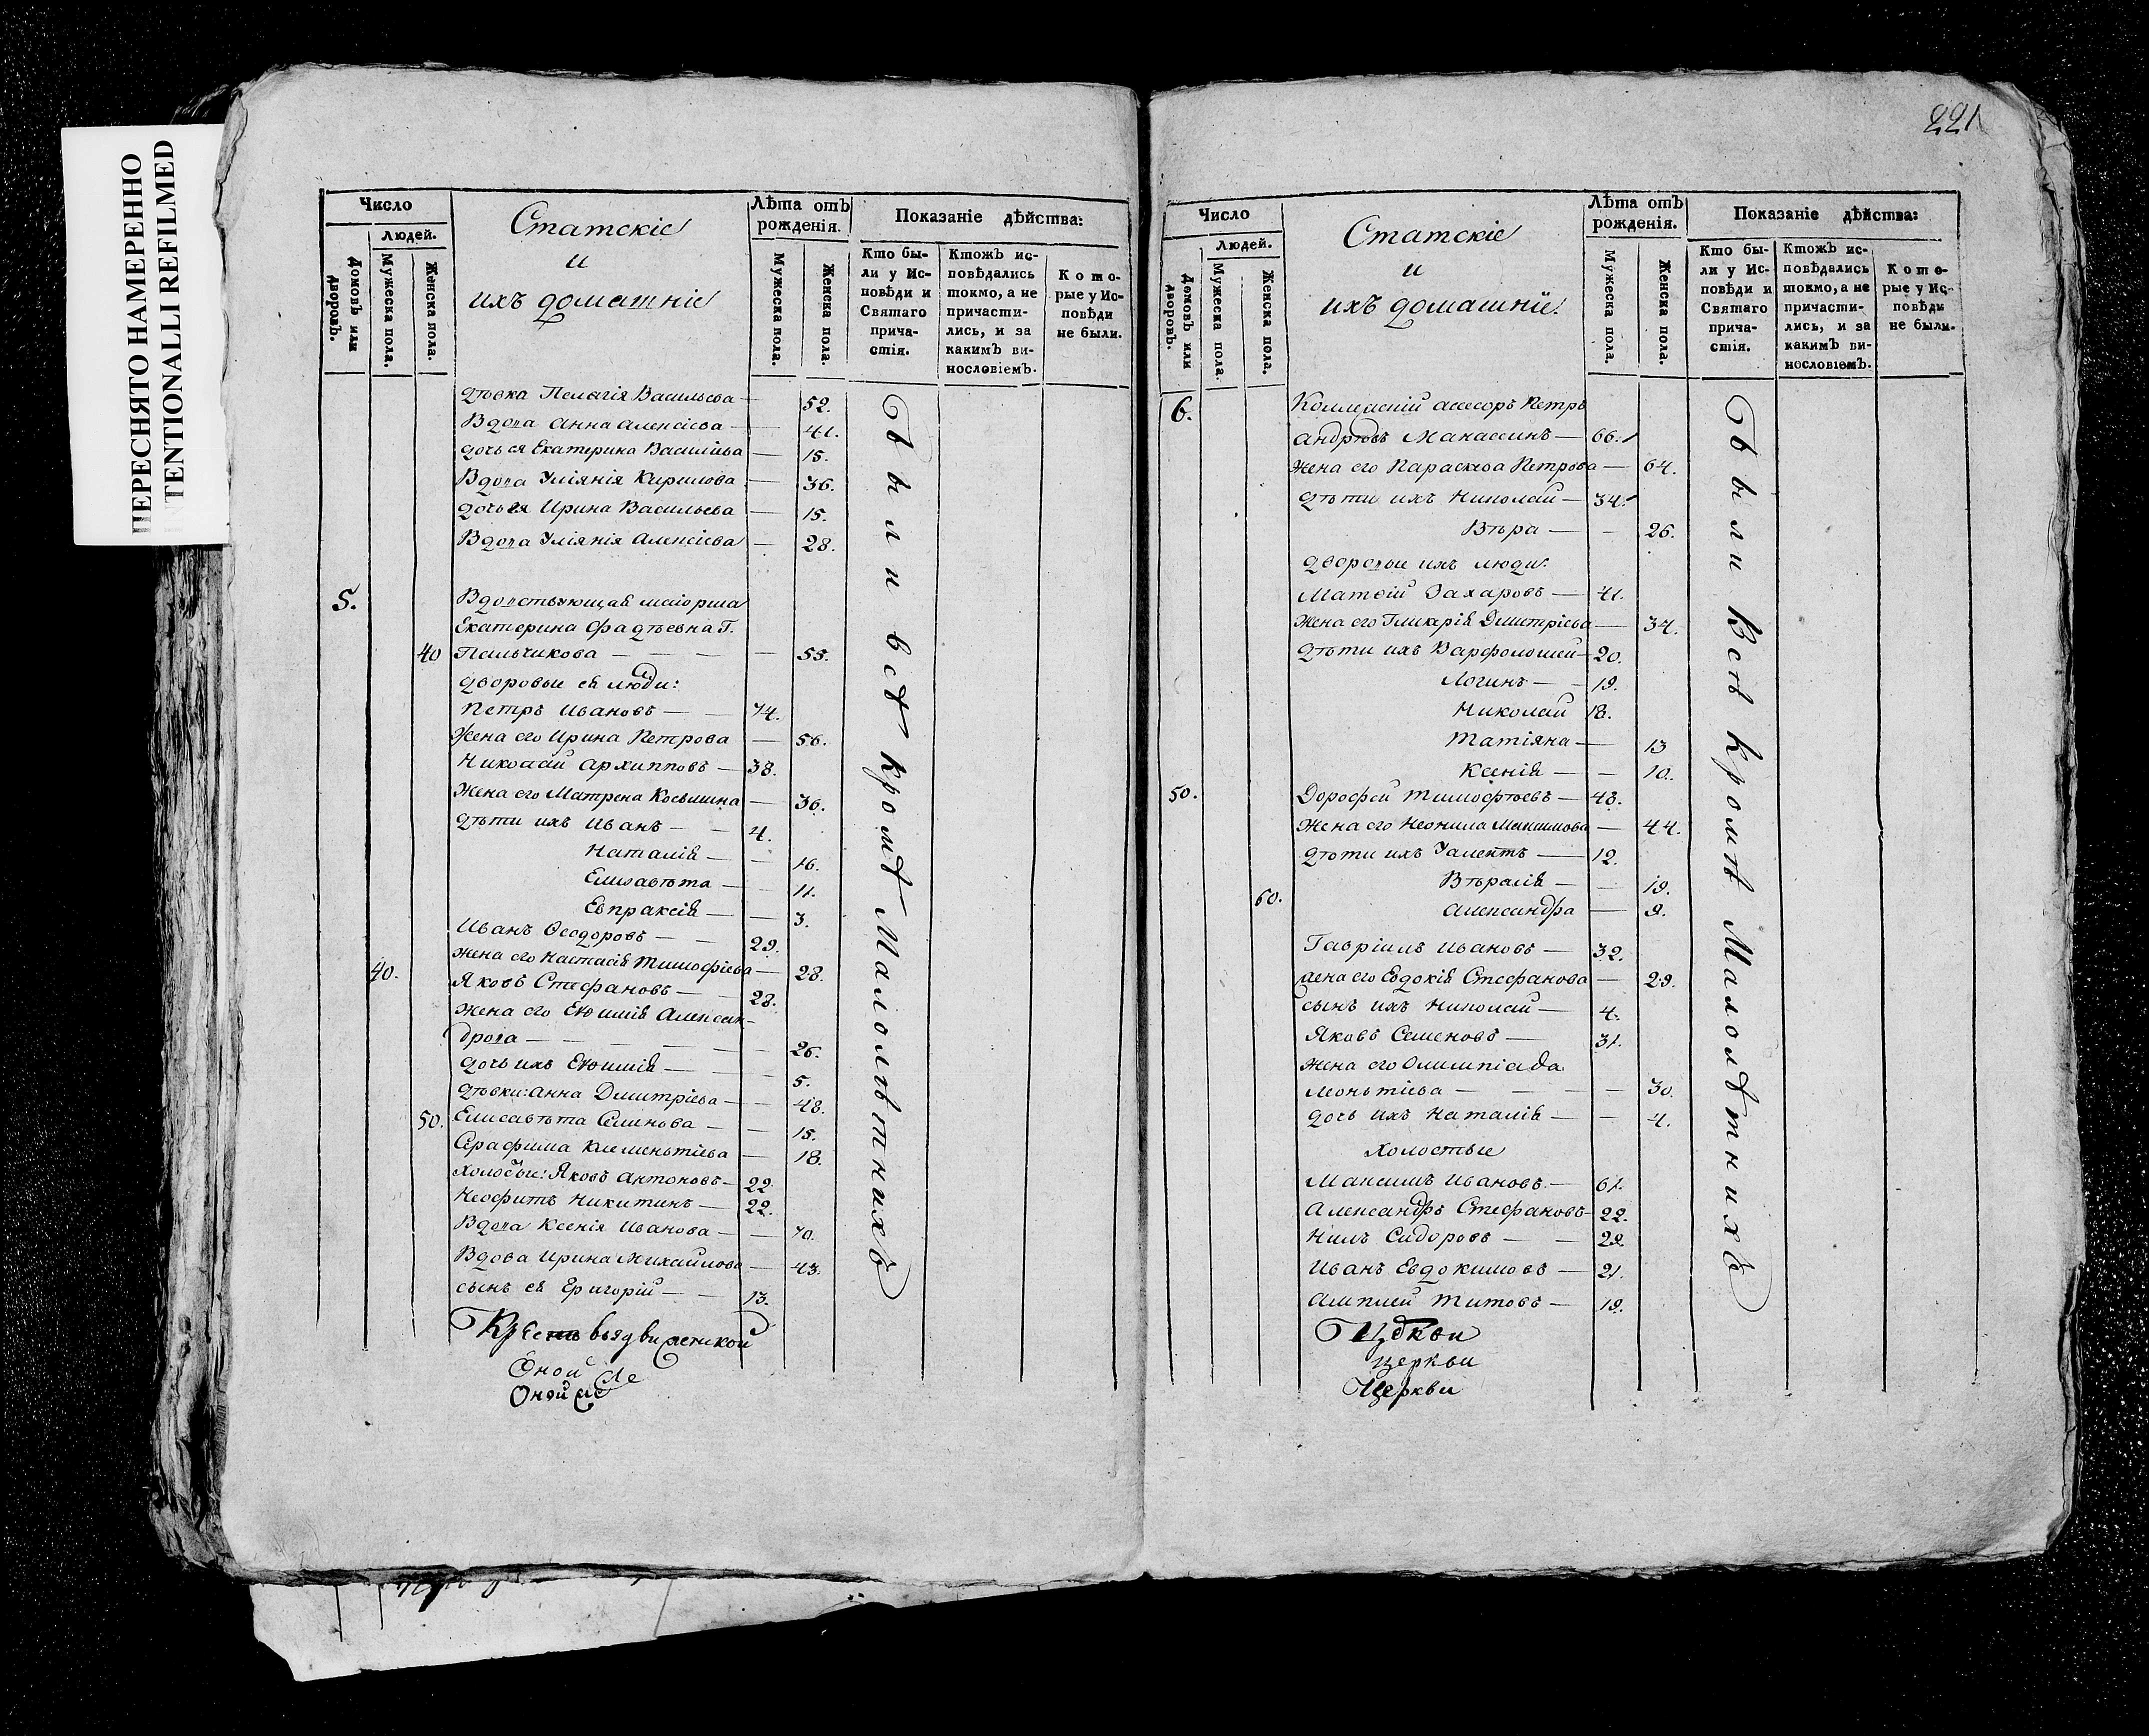 ПЕРЕСНЯТО НАМЕРЕННО
INTENTIONALLI REFILMED
Число
Людей.
Домовъ или дворовъ.
Мужеска пола.
Женска пола.
Статскіе
и
ихъ домашніе
Лѣта отъ рожденія.
Мужеска пола.
Женска пола.
Показаніе дѣйства:
Кто были у Исповѣди и Святаго причастія.
Ктожъ исповѣдались токмо, а не причастились, и за какимъ винословіемъ.
Которые у Исповѣди не были.
дѣвка Пелагія Васильева — 52.
Вдова Анна Алексіева — 41.
дочь ея Екатерина Васильева — 15.
Вдова Уліянія Кирилова — 36.
дочь ея Ирина Васильева — 15.
Вдова Уліянія Алексіева — 28.
5. Вдовствующая маіорша
Екатерина Фадѣевна Г.
40 Пальчикова — — — — 55.
дворовые ея люди:
Петръ Ивановъ — — 74.
Жена его Ирина Петрова — 56.
Николай Архипповъ — 38.
Жена его Матрена Косьмина — 36.
дѣти ихъ Иванъ — — 4.
Наталія — — 16.
Елисавѣта — — 11.
Евпраксія — — 3.
Иванъ Ѳеодоровъ — — 29.
Жена его Настасія Тимофіева — 28.
40. Яковъ Стефановъ — — 28.
Жена его Евѳимія Алексан-
дрова — — — — 26.
дочь ихъ Евѳимія — — 5.
дѣвки: Анна Димитріева — — 48.
50. Елисавѣта Семенова — — 15.
Серафима Клементіева — 18.
Холостые: Яковъ Антоновъ — 22
Неофитъ Никитинъ — 22.
Вдова Ксенія Иванова — — 70.
Вдова Ирина Михайлова — 43.
сынъ ея Григорій — — 13.
Были всѣ кромѣ Малолѣтнихъ
Оной же
Оной же
221
Число
Людей.
Домовъ или дворовъ.
Мужеска пола.
Женска пола.
Статскіе
и
ихъ домашніе.
Лѣта отъ рожденія.
Мужеска пола.
Женска пола.
Показаніе дѣйства:
Кто были у Исповѣди и Святаго причастія.
Ктожъ исповѣдались токмо, а не причастились, и за какимъ винословіемъ.
Которые у Исповѣди не были.
6. Коллежскій асесоръ Петръ
Андрѣевъ Манассинъ — 66.
Жена его Параскева Петрова — 64.
дѣти ихъ Николай — 34.
Вѣра — — 26.
дворовые ихъ люди:
Матѳій Захаровъ — 41.
Жена его Гликерія Димитріева — 34.
дѣти ихъ Варфоломей — 20.
Логинъ — — 19.
Николай 18.
Татіяна — — 13
Ксенія — — 10.
50. Дорофей Тимофѣевъ — 48.
Жена его Неонила Максимова — 44.
дѣти ихъ — 12.
— — 19.
60. Александра — 9.
Гавріилъ Ивановъ — 32.
жена его Евдокія Стефанова — 29.
сынъ ихъ Николай — 4.
Яковъ Семеновъ — 31.
Жена его Олимпіада
Леонтіева — — — 30.
дочь ихъ Наталія — — 4.
Холостые
Максимъ Ивановъ. — 61.
Александръ Стефановъ — 22.
Нилъ Сидоровъ — — 22.
Иванъ Евдокимовъ — 21.
Титовъ — 19.
Были Всѣ кромѣ Малолѣтнихъ
Церкви
Церкви